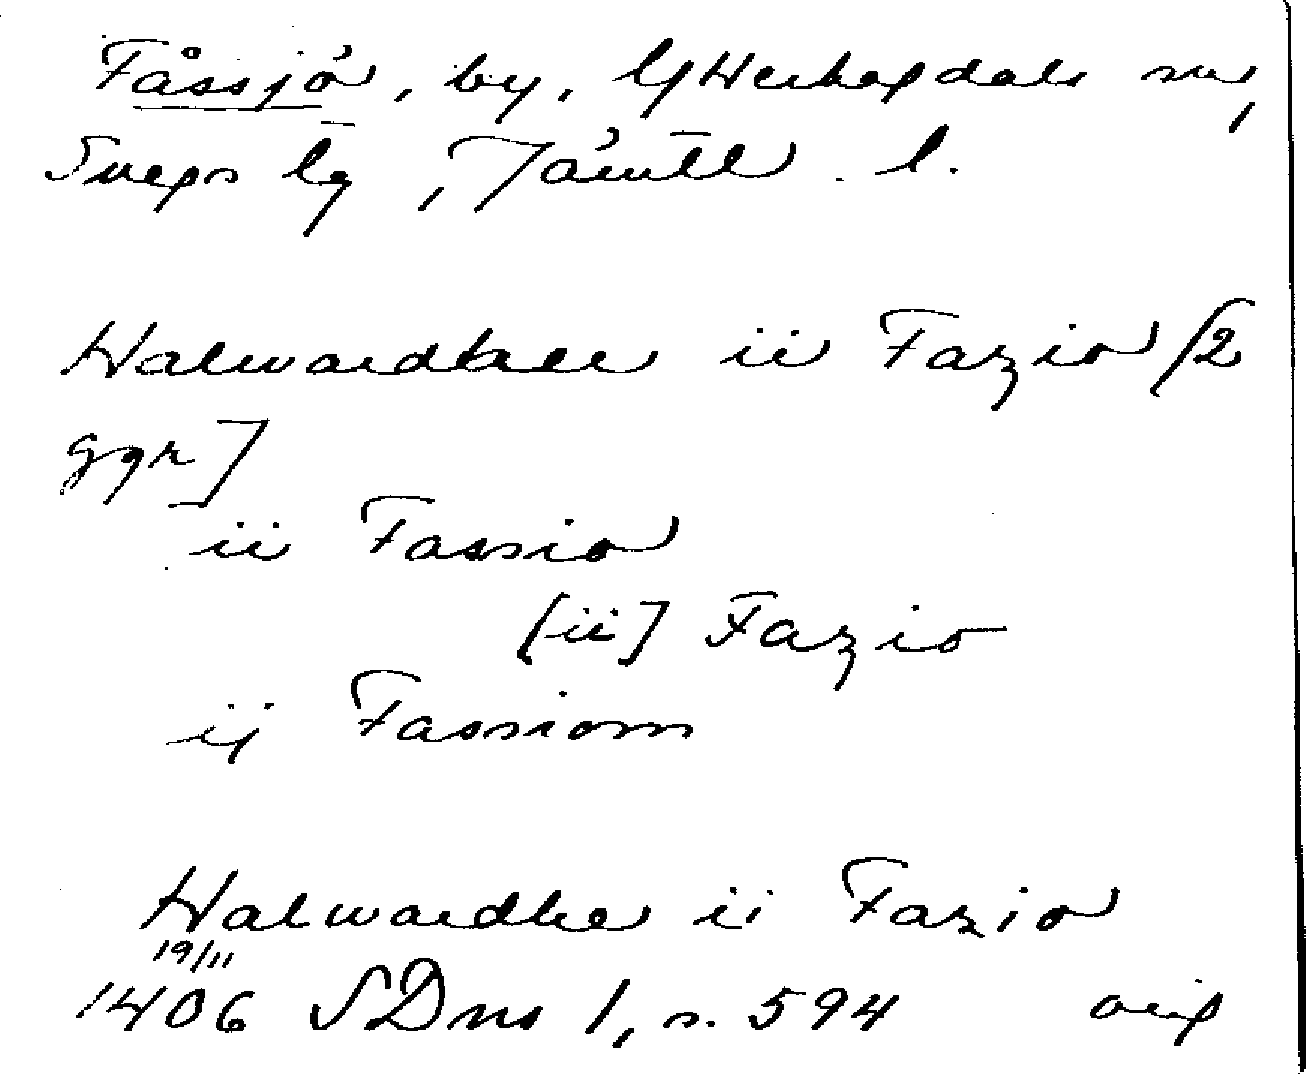 Fåssjö, by, Ytterhogdals sn,
Svegs tg, Jämtl. l.
Halwardher ii Fazio [2
ggr]
ii Fassio
[ii] Fazio
ij Fassiom
Halwardhe ii Fazio
19/11
1406 SDns 1, s. 594 orig